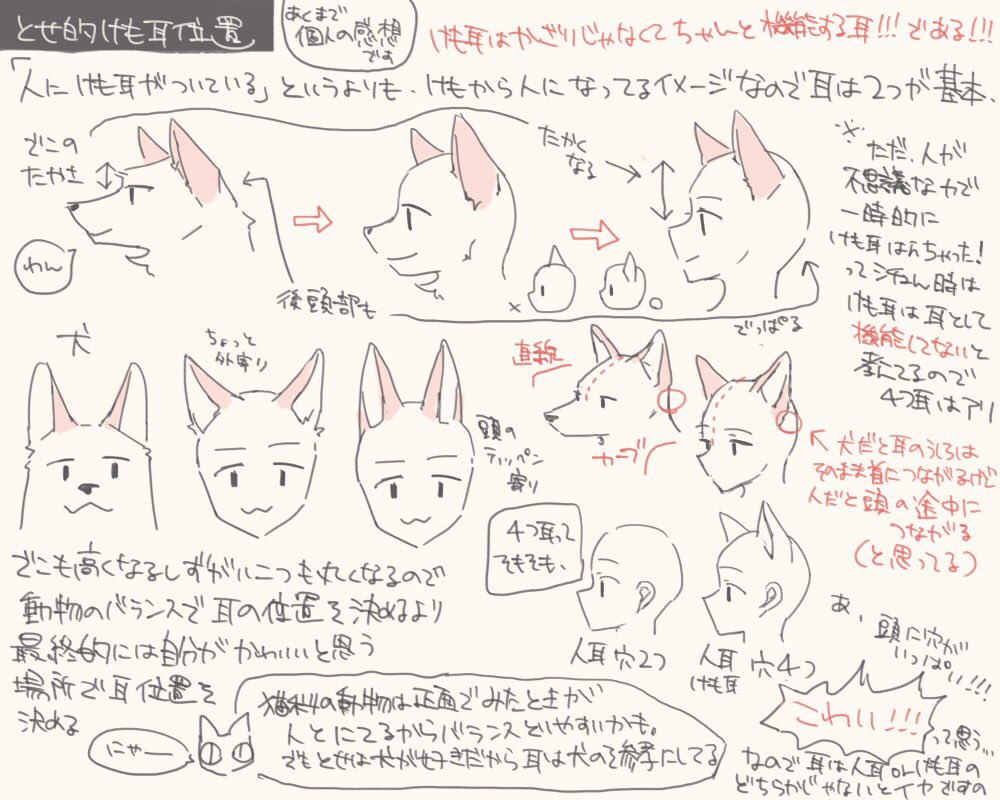 とせ的けも耳位置
あくまで
個人の感想
です
けも耳はかざりじゃなくてちゃんと機能する耳!!!である!!!
「人にけも耳がついている」というよりも、けもから人になってるイメージなので耳は2つが基本、
でこの
たかさ
わん
後頭部も
たかく
なる
でっぱる
※
ただ、人が
不思議な力で
一時的に
けも耳はえちゃった!
ってシチュん時は
けも耳は耳として
機能してないと
考えてるので
4つ耳はアリ
犬
ちょっと
外寄り
頭の
テッペン
寄り
直線
カーブ
犬だと耳のうしろは
そのまま首につながるけど
人だと頭の途中に
つながる
(と思ってる)
でこも高くなるし
もなくなるので
動物のバランスで耳の位置を決めるより
最終的には自分がかわいいと思う
場所で耳位置を
決める
にゃー
猫科の動物は正面でみたときが
人とにてるからバランスとりやすいかも。
でもとせは犬が好きだから耳は犬のを参考にしてる
4つ耳って
そもそも、
人耳 穴2つ
人耳
けも耳
穴4つ
あ、
頭に穴が
いっぱい!!!
こわい!!!
って思う…
なので耳は人耳orけも耳の
どちらかじゃないとイヤですの